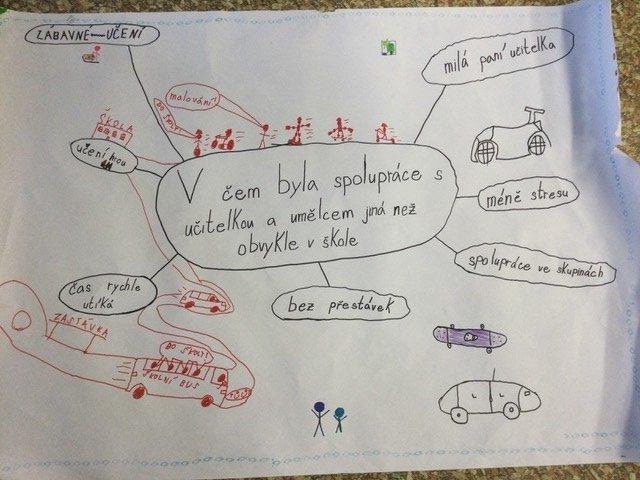 ZÁBAVNÉ—UČENÍ
milá paní učitelka
malování!
DO ŠKOLY!
ŠKOLA
učení hrou
V čem byla spolupráce s
učitelkou a umělcem jiná než
obvykle v škole
méně stresu
spolupráce ve skupinách
čas rychle
utíká
bez přestávek
ZASTÁVKA
DO ŠKOLY!
ŠKOLNÍ BUS